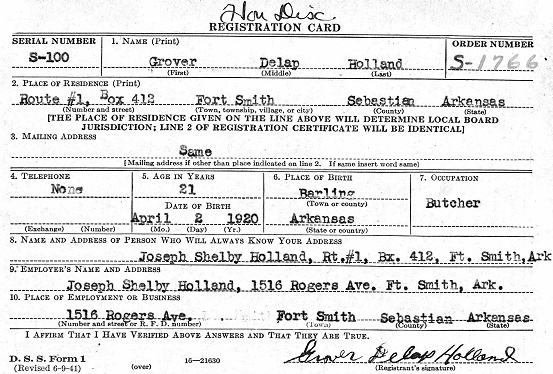 Hon Disc.
REGISTRATION CARD
SERIAL NUMBER 1. NAME (Print) ORDER NUMBER
S-100 Grover Delap Holland S-1766
(First) (Middle) (Last)
2. PLACE OF RESIDENCE (Print)
Route #1, Box 412 Fort Smith Sebastian Arkansas
(Number and street) (Town, township, village, or city) (County) (State)
[THE PLACE OF RESIDENCE GIVEN ON THE LINE ABOVE WILL DETERMINE LOCAL BOARD
JURISDICTION; LINE 2 OF REGISTRATION CERTIFICATE WILL BE IDENTICAL]
3. MAILING ADDRESS
Same
[Mailing address if other than place indicated on line 2. If same insert word same]
4. TELEPHONE 5. AGE IN YEARS 6. PLACE OF BIRTH 7. OCCUPATION
None 21 Barling Butcher
DATE OF BIRTH (Town or county)
April 2 1920 Arkansas
(Exchange) (Number) (Mo.) (Day) (Yr.) (State or country)
8. NAME AND ADDRESS OF PERSON WHO WILL ALWAYS KNOW YOUR ADDRESS
Joseph Shelby Holland, Rt.#1, Bx. 412, Ft. Smith,Ark
9. EMPLOYER'S NAME AND ADDRESS
Joseph Shelby Holland, 1516 Rogers Ave. Ft. Smith, Ark.
10. PLACE OF EMPLOYMENT OR BUSINESS
1516 Rogers Ave. Fort Smith Sebastian Arkansas
(Number and street or R. F. D. number) (Town) (County) (State)
I AFFIRM THAT I HAVE VERIFIED ABOVE ANSWERS AND THAT THEY ARE TRUE.
D. S. S. Form 1
(Revised 6-9-41) (over) 16—21630 Grover Delap Holland
(Registrant's signature)